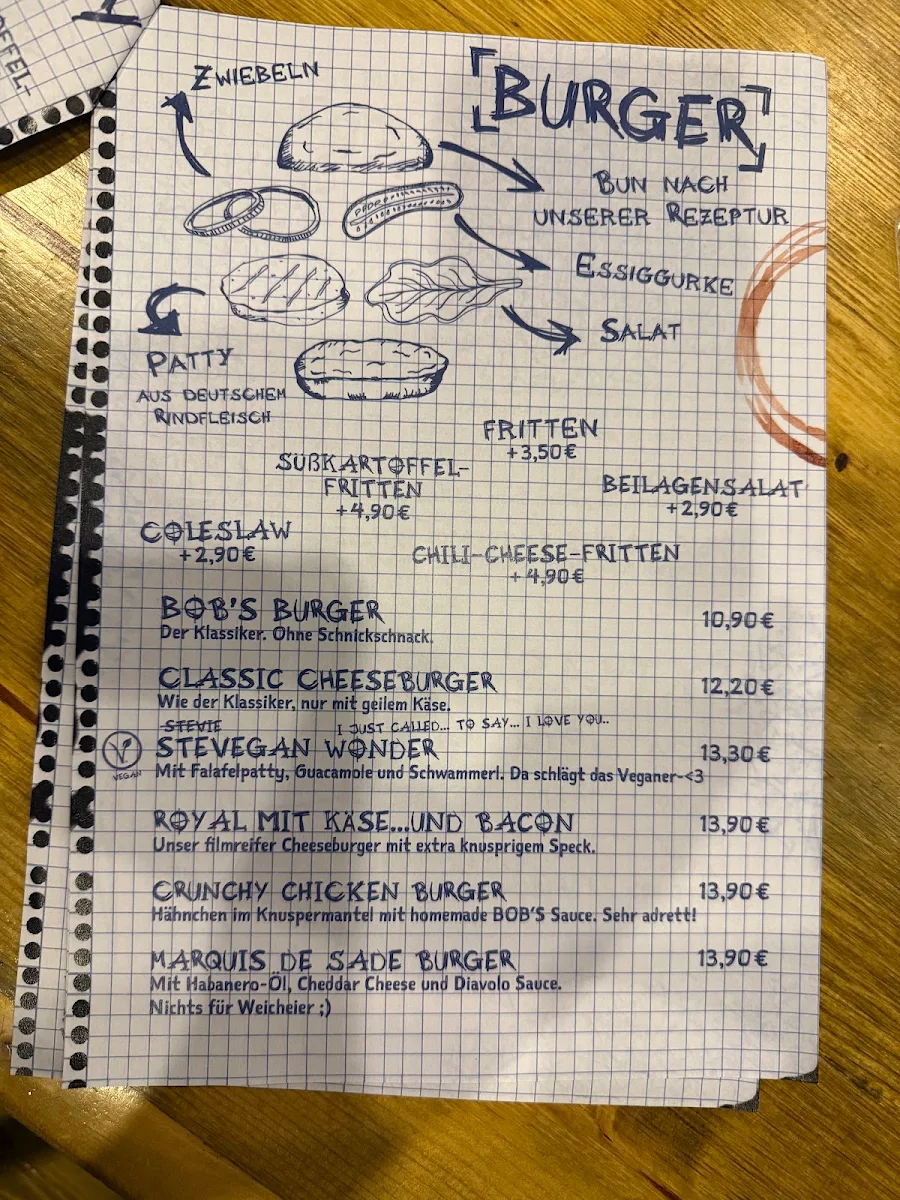 OFFEL-
ZWIEBELN
BURGER
BUN NACH
UNSERER REZEPTUR
ESSIGGURKE
SALAT
PATTY
AUS DEUTSCHEM
RINDFLEISCH
FRITTEN
+3,50€
SÜßKARTOFFEL-
FRITTEN
+4,90€
BEILAGENSALAT
+2,90€
COLESLAW
+2,90€
CHILI-CHEESE-FRITTEN
+4,90€
BOB'S BURGER 10,90€
Der Klassiker. Ohne Schnickschnack.
CLASSIC CHEESEBURGER 12,20€
Wie der Klassiker, nur mit geilem Käse.
STEVIE I JUST CALLED... TO SAY... I LOVE YOU..
STEVEGAN WONDER 13,30€
VEGAN
Mit Falafelpatty, Guacamole und Schwammerl. Da schlägt das Veganer-<3
ROYAL MIT KÄSE...UND BACON 13,90€
Unser filmreifer Cheeseburger mit extra knusprigem Speck.
CRUNCHY CHICKEN BURGER 13,90€
Hähnchen im Knuspermantel mit homemade BOB'S Sauce. Sehr adrett!
MARQUIS DE SADE BURGER 13,90€
Mit Habanero-Öl, Cheddar Cheese und Diavolo Sauce.
Nichts für Weicheier ;)